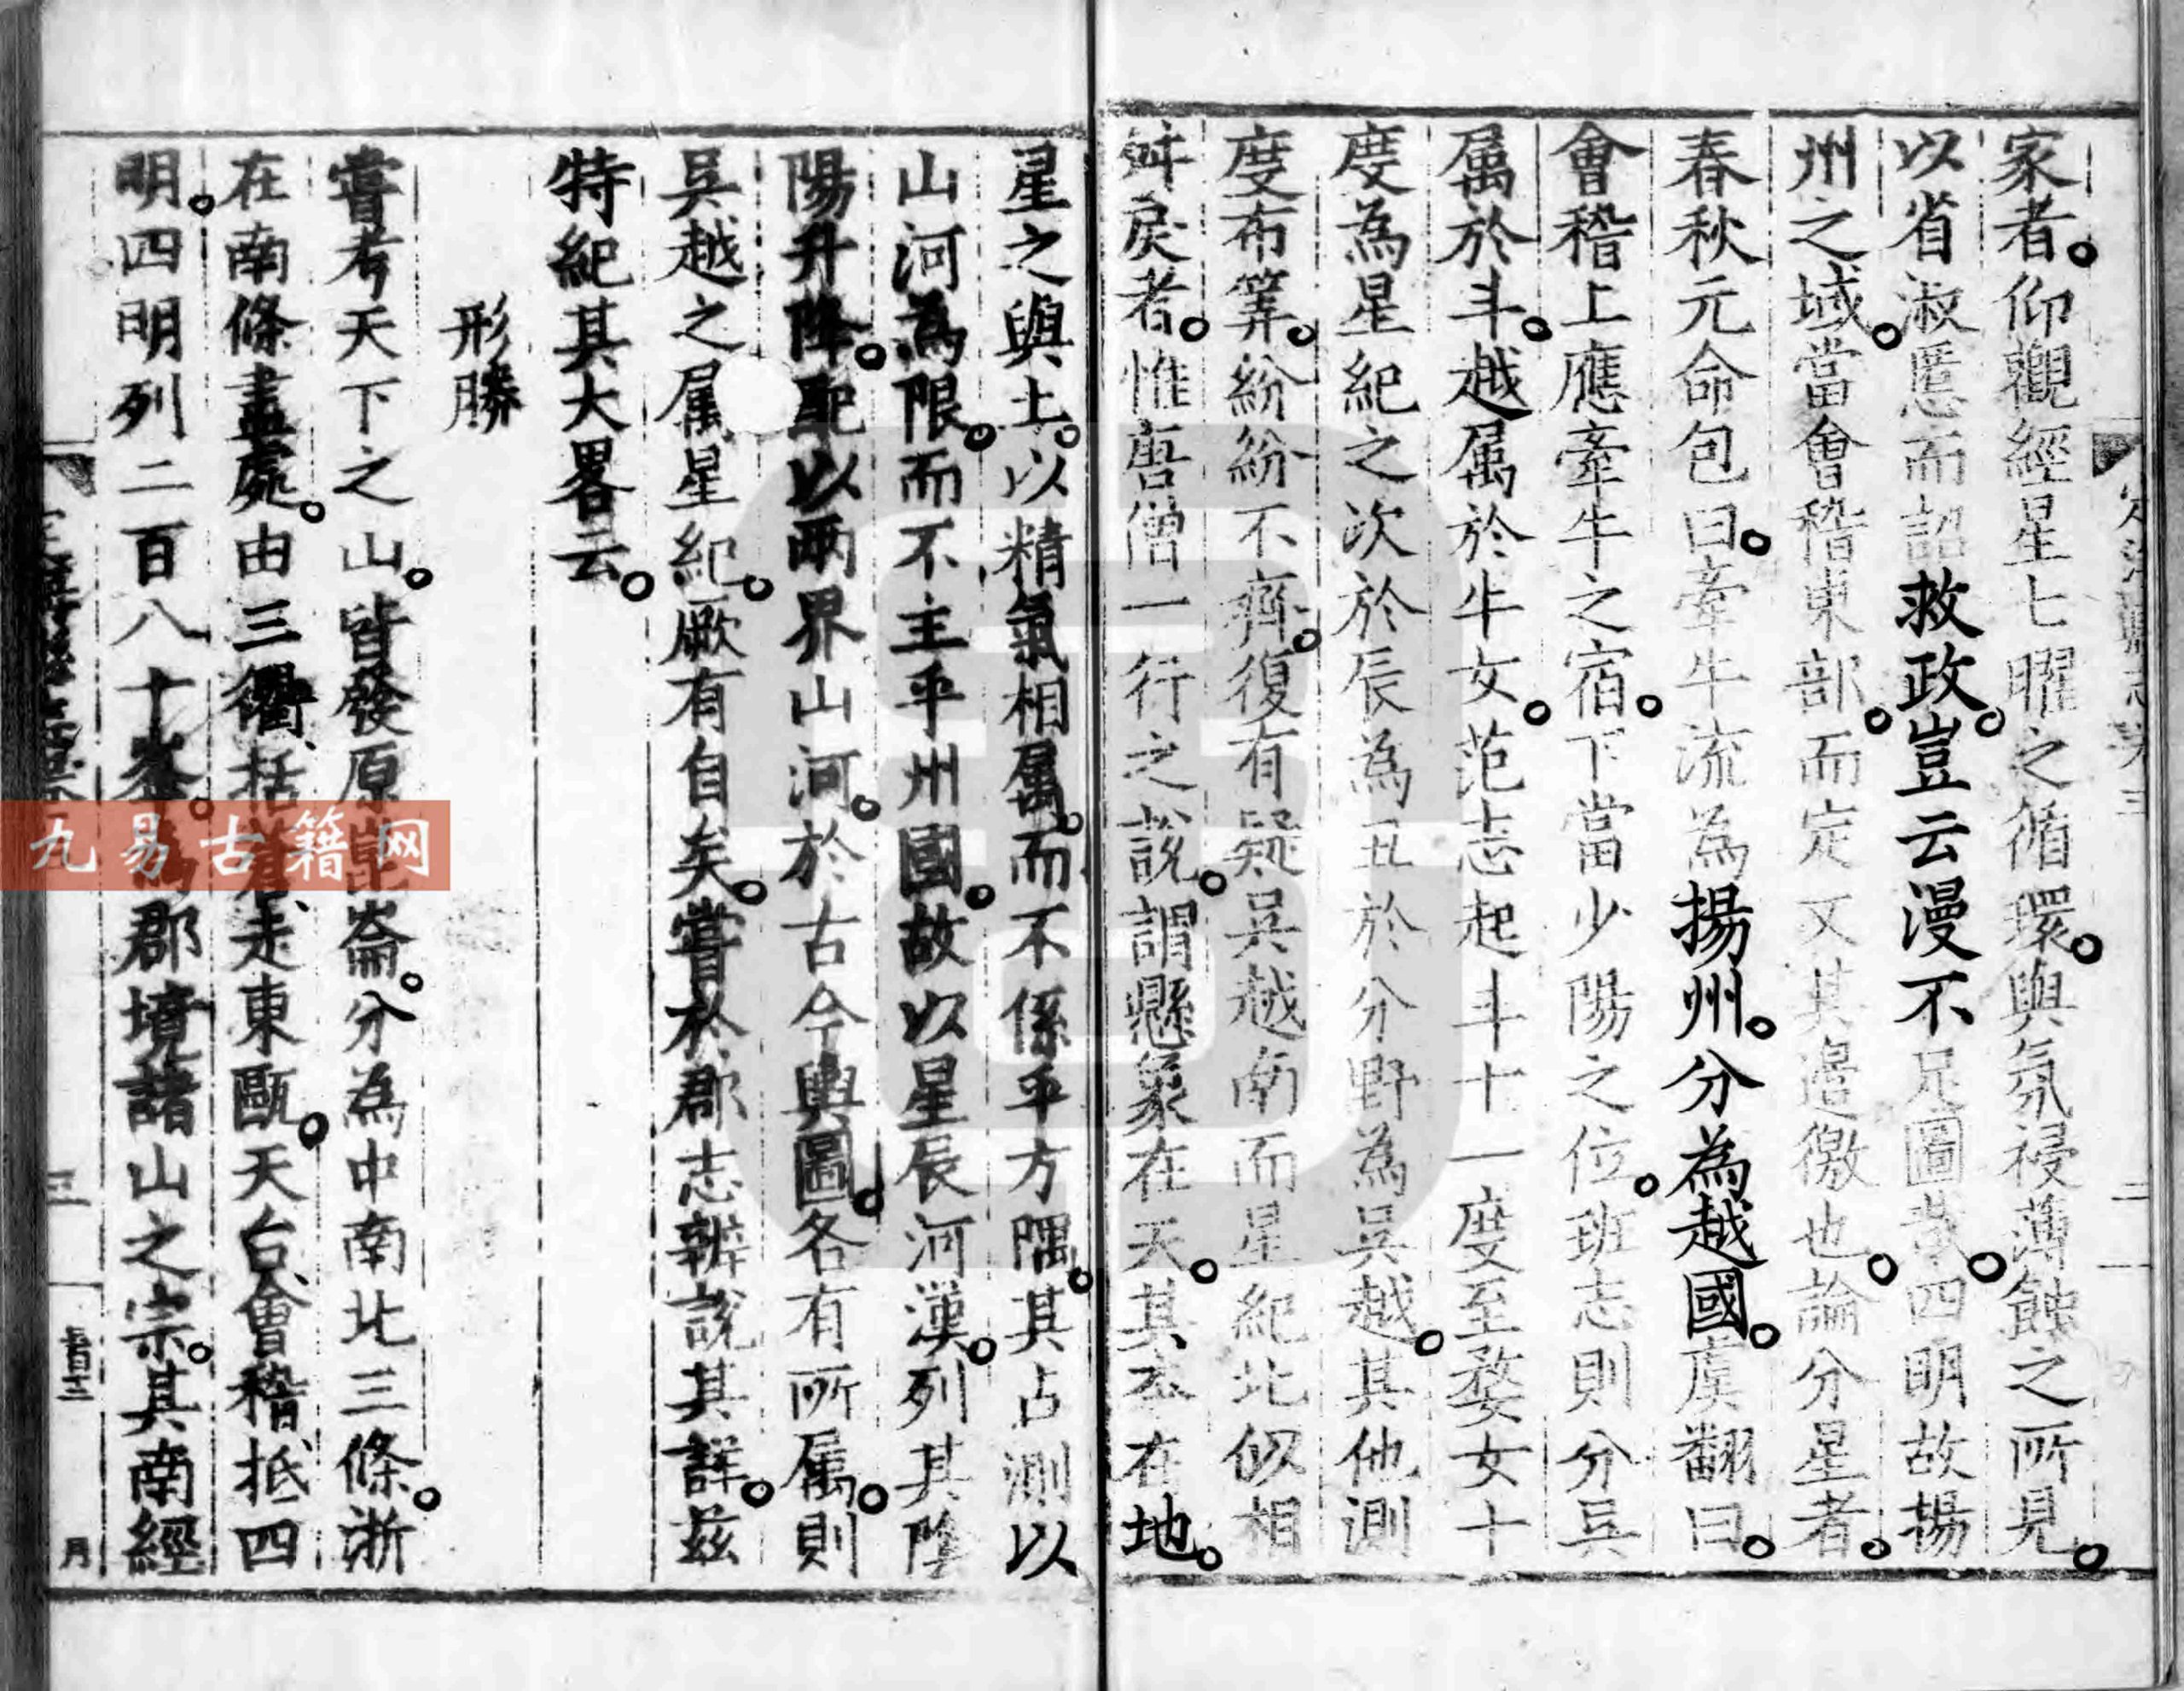 家者仰觀經星七曜之循環與氛祲薄蝕之所見
以省淑慝而詔救政豈云漫不足圖哉四明故揚
州之域當會稽東部而定又其邊徼也論分星者
春秋元命包曰牽牛流為揚州分為越國虞翻曰
會稽上應牽牛之宿下當少陽之位班志則分吳
属於斗越属於牛女范志起斗十一度至婺女十
度為星紀之次於辰為丑於分野為吳越其他測
度布筭紛紛不齊復有疑吳越南而星紀北似相
舛戾者惟唐僧一行之說謂懸象在天其本在地
星之與土以精氣相属而不係乎方隅其占測以
山河為限而不主乎州國故以星辰河漢列其陰
陽升降配以兩界山河於古今輿圖各有所属則
吳越之属星紀厥有自矣嘗於郡志辨說其詳茲
特紀其大畧云
形勝
嘗考天下之山皆發原崑崙分為中南北三條浙
在南條盡處由三衢括蒼走東甌天台會稽抵四
明四明列二百八十峯為郡境諸山之宗其南經
三
九易古籍网